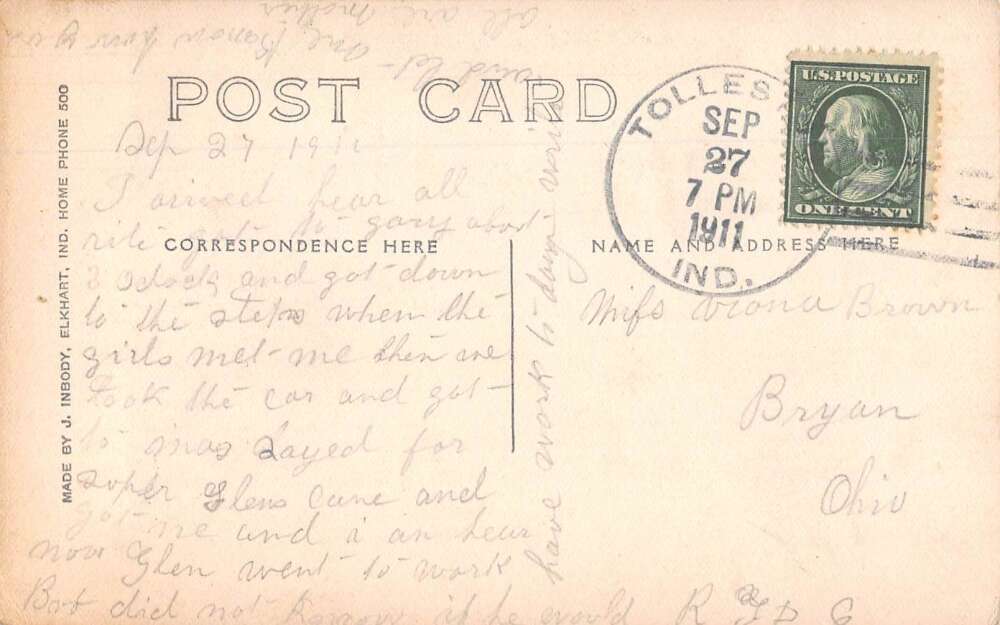 MADE BY J. INBODY, ELKHART, IND. HOME PHONE 500
POST CARD
TOLLES
SEP
27
7 PM
1911
IND.
U.S. POSTAGE
ONE CENT
CORRESPONDENCE HERE
NAME AND ADDRESS HERE
Sep 27 1911
I arived hear all
rite got to gary about
3 oclock and got down
to the steps when the
girls met me then we
took the car and got
to inas Sayed for
super Glens came and
got me and i an hear
now Glen went to work
But did not know if he would
have work to days
and let me know how you
all are mother
Miss Brown
Bryan
Ohio
R F D 6